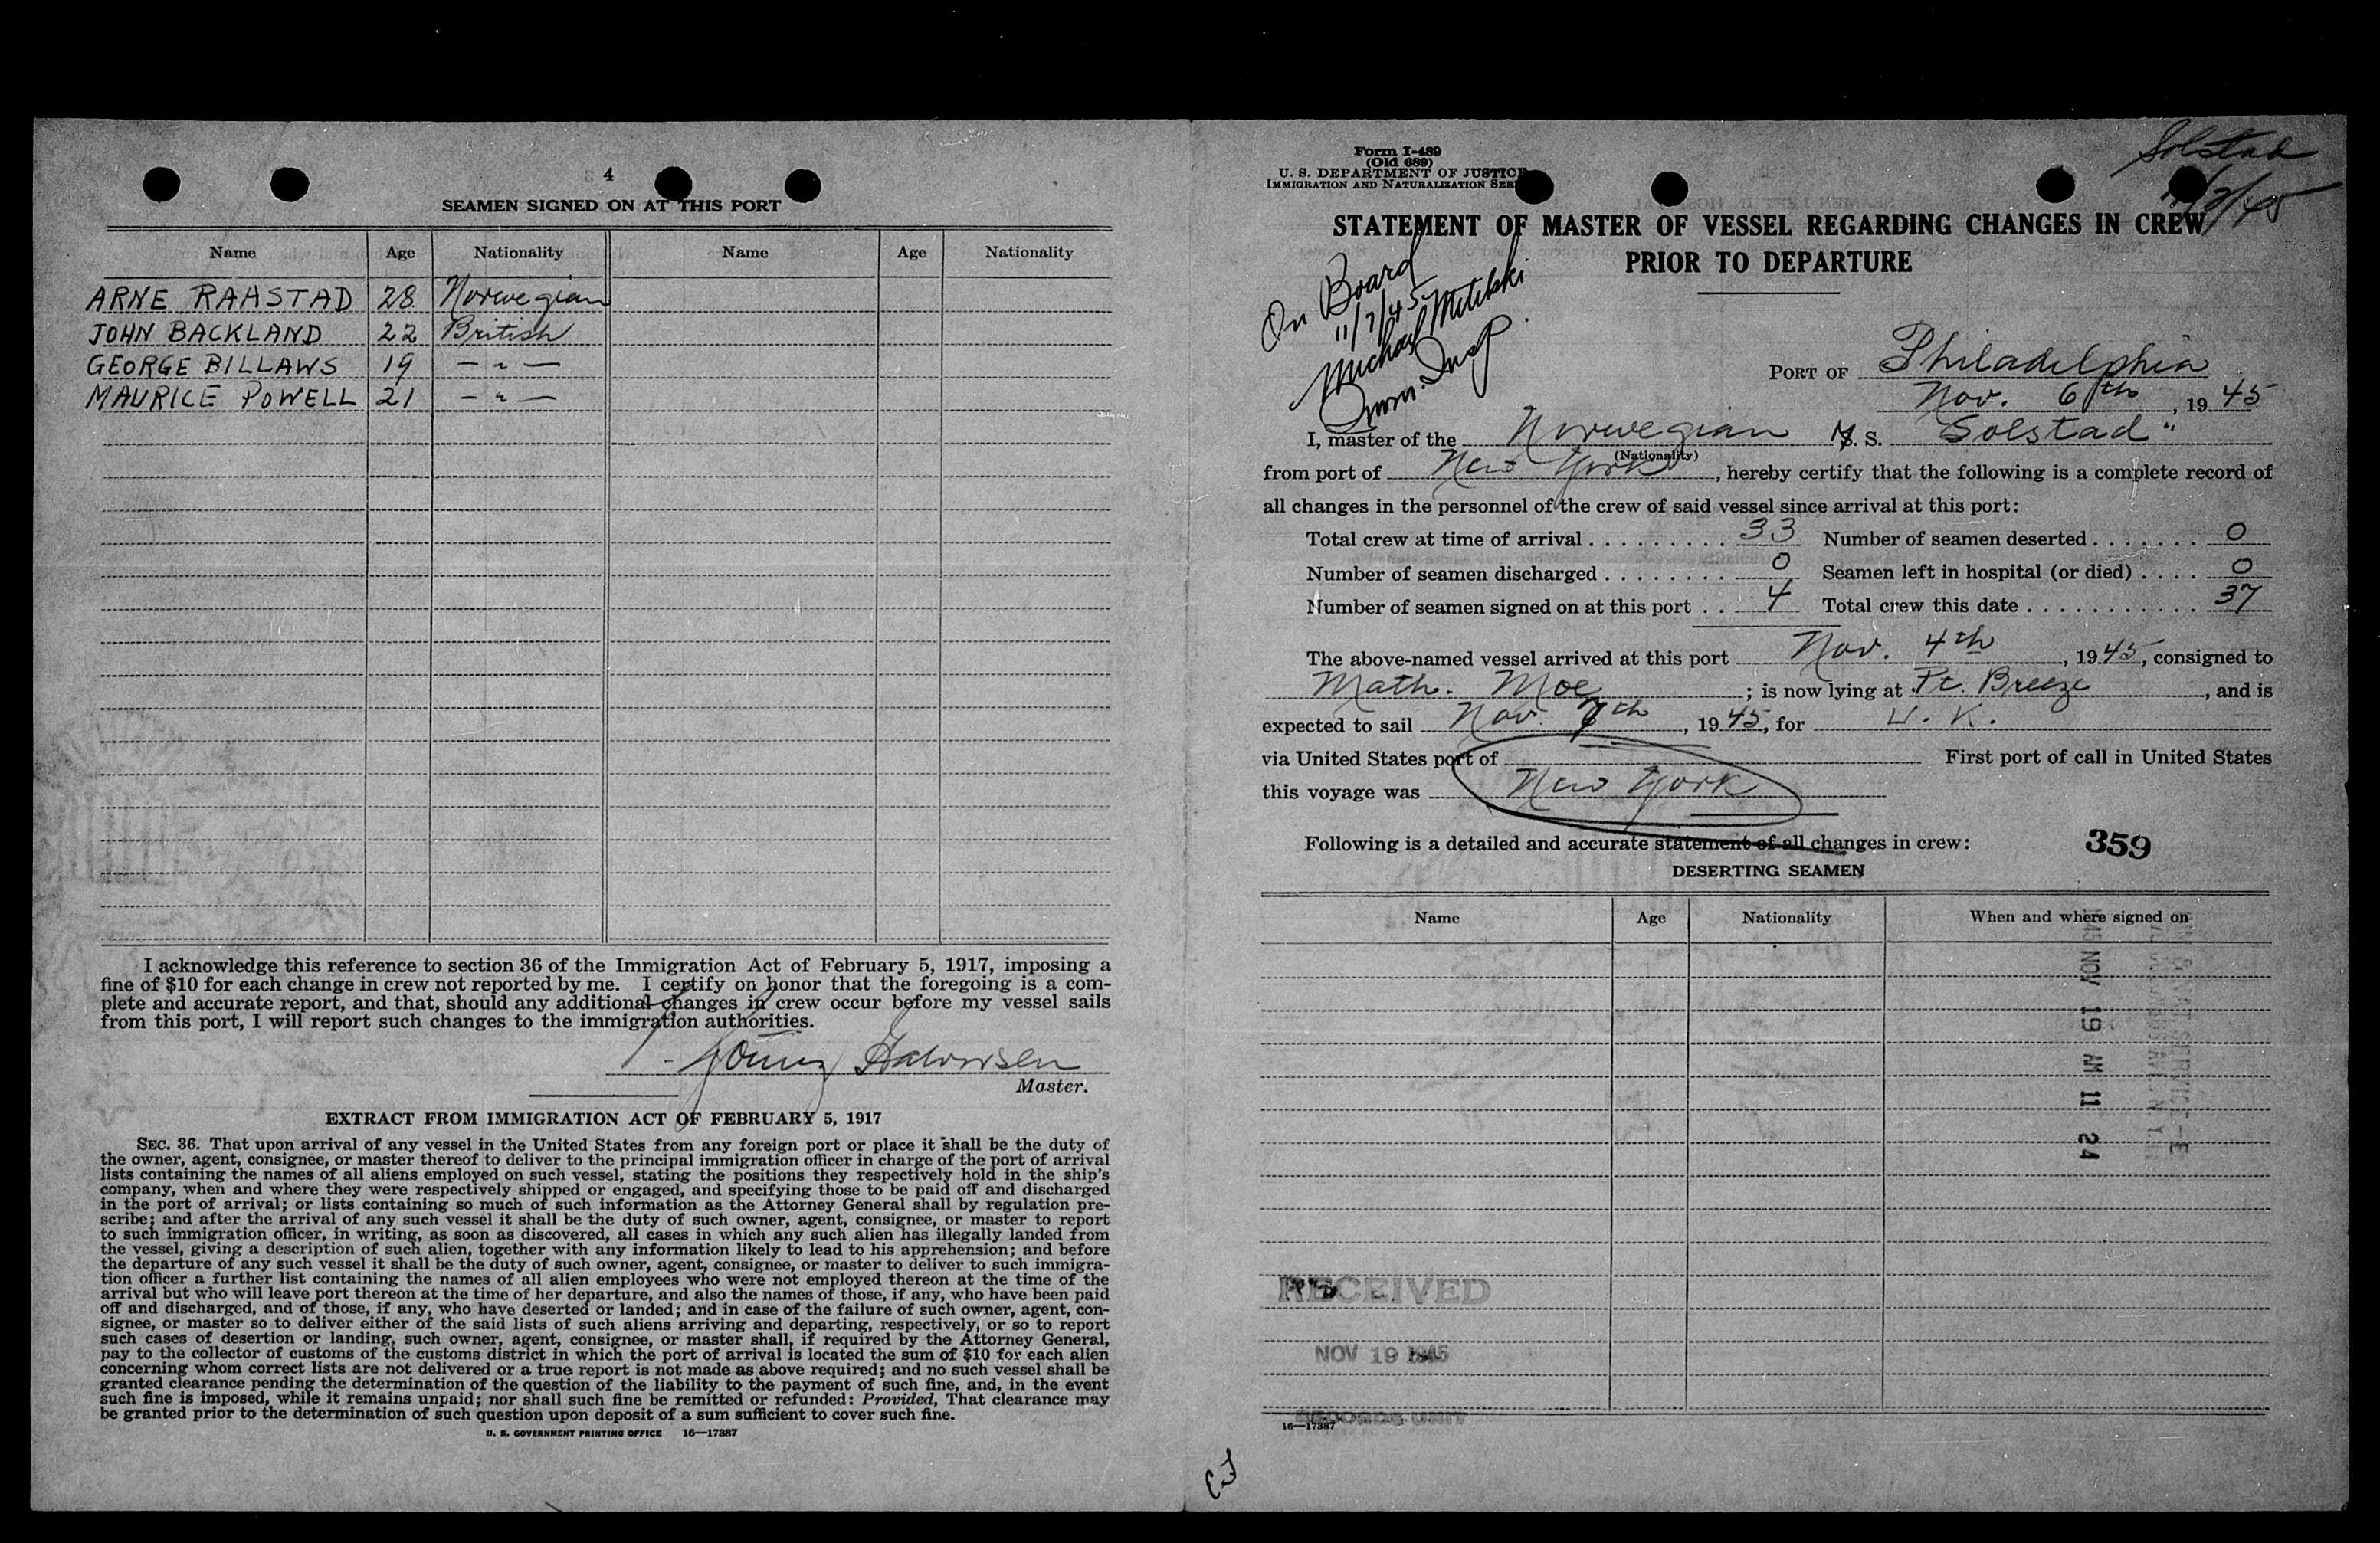 4
SEAMEN SIGNED ON AT THIS PORT
Name Age Nationality Name Age Nationality
ARNE RAASTAD 28 Norwegian
JOHN BACKLAND 22 British
GEORGE BILLAWS 19 — " —
MAURICE POWELL 21 — " —
I acknowledge this reference to section 36 of the Immigration Act of February 5, 1917, imposing a
fine of $10 for each change in crew not reported by me. I certify on honor that the foregoing is a com-
plete and accurate report, and that, should any additional changes in crew occur before my vessel sails
from this port, I will report such changes to the immigration authorities.
Halvorsen
Master.
EXTRACT FROM IMMIGRATION ACT OF FEBRUARY 5, 1917
SEC. 36. That upon arrival of any vessel in the United States from any foreign port or place it shall be the duty of
the owner, agent, consignee, or master thereof to deliver to the principal immigration officer in charge of the port of arrival
lists containing the names of all aliens employed on such vessel, stating the positions they respectively hold in the ship's
company, when and where they were respectively shipped or engaged, and specifying those to be paid off and discharged
in the port of arrival; or lists containing so much of such information as the Attorney General shall by regulation pre-
scribe; and after the arrival of any such vessel it shall be the duty of such owner, agent, consignee, or master to report
to such immigration officer, in writing, as soon as discovered, all cases in which any such alien has illegally landed from
the vessel, giving a description of such alien, together with any information likely to lead to his apprehension; and before
the departure of any such vessel it shall be the duty of such owner, agent, consignee, or master to deliver to such immigra-
tion officer a further list containing the names of all alien employees who were not employed thereon at the time of the
arrival but who will leave port thereon at the time of her departure, and also the names of those, if any, who have been paid
off and discharged, and of those, if any, who have deserted or landed; and in case of the failure of such owner, agent, con-
signee, or master so to deliver either of the said lists of such aliens arriving and departing, respectively, or so to report
such cases of desertion or landing, such owner, agent, consignee, or master shall, if required by the Attorney General,
pay to the collector of customs of the customs district in which the port of arrival is located the sum of $10 for each alien
concerning whom correct lists are not delivered or a true report is not made as above required; and no such vessel shall be
granted clearance pending the determination of the question of the liability to the payment of such fine, and, in the event
such fine is imposed, while it remains unpaid; nor shall such fine be remitted or refunded: Provided, That clearance may
be granted prior to the determination of such question upon deposit of a sum sufficient to cover such fine.
U. S. GOVERNMENT PRINTING OFFICE 16—17387
Form I-489
(Old 689)
U. S. DEPARTMENT OF JUSTICE
IMMIGRATION AND NATURALIZATION SER
Solstad
STATEMENT OF MASTER OF VESSEL REGARDING CHANGES IN CREW
PRIOR TO DEPARTURE
On Board
11/7/45
Michael
Imm. Insp.
PORT OF Philadelphia
Nov. 6th, 1945
I, master of the Norwegian M. S. Solstad "
(Nationality)
from port of New York, hereby certify that the following is a complete record of
all changes in the personnel of the crew of said vessel since arrival at this port:
Total crew at time of arrival . . . . . . . . . 33 Number of seamen deserted . . . . . . . 0
Number of seamen discharged . . . . . . . . 0 Seamen left in hospital (or died) . . . . 0
Number of seamen signed on at this port . . 4 Total crew this date . . . . . . . . . . . . 37
The above-named vessel arrived at this port Nov. 4th, 1945, consigned to
Math. Moe; is now lying at Pt. Breeze, and is
expected to sail Nov. 7th, 1945, for U. K.
via United States port of First port of call in United States
this voyage was New York
Following is a detailed and accurate statement of all changes in crew:
359
DESERTING SEAMEN
Name Age Nationality When and where signed on
1945 NOV 19 AM 11 24
RECEIVED
NOV 19 1945
RECORDS UNIT
16—17387